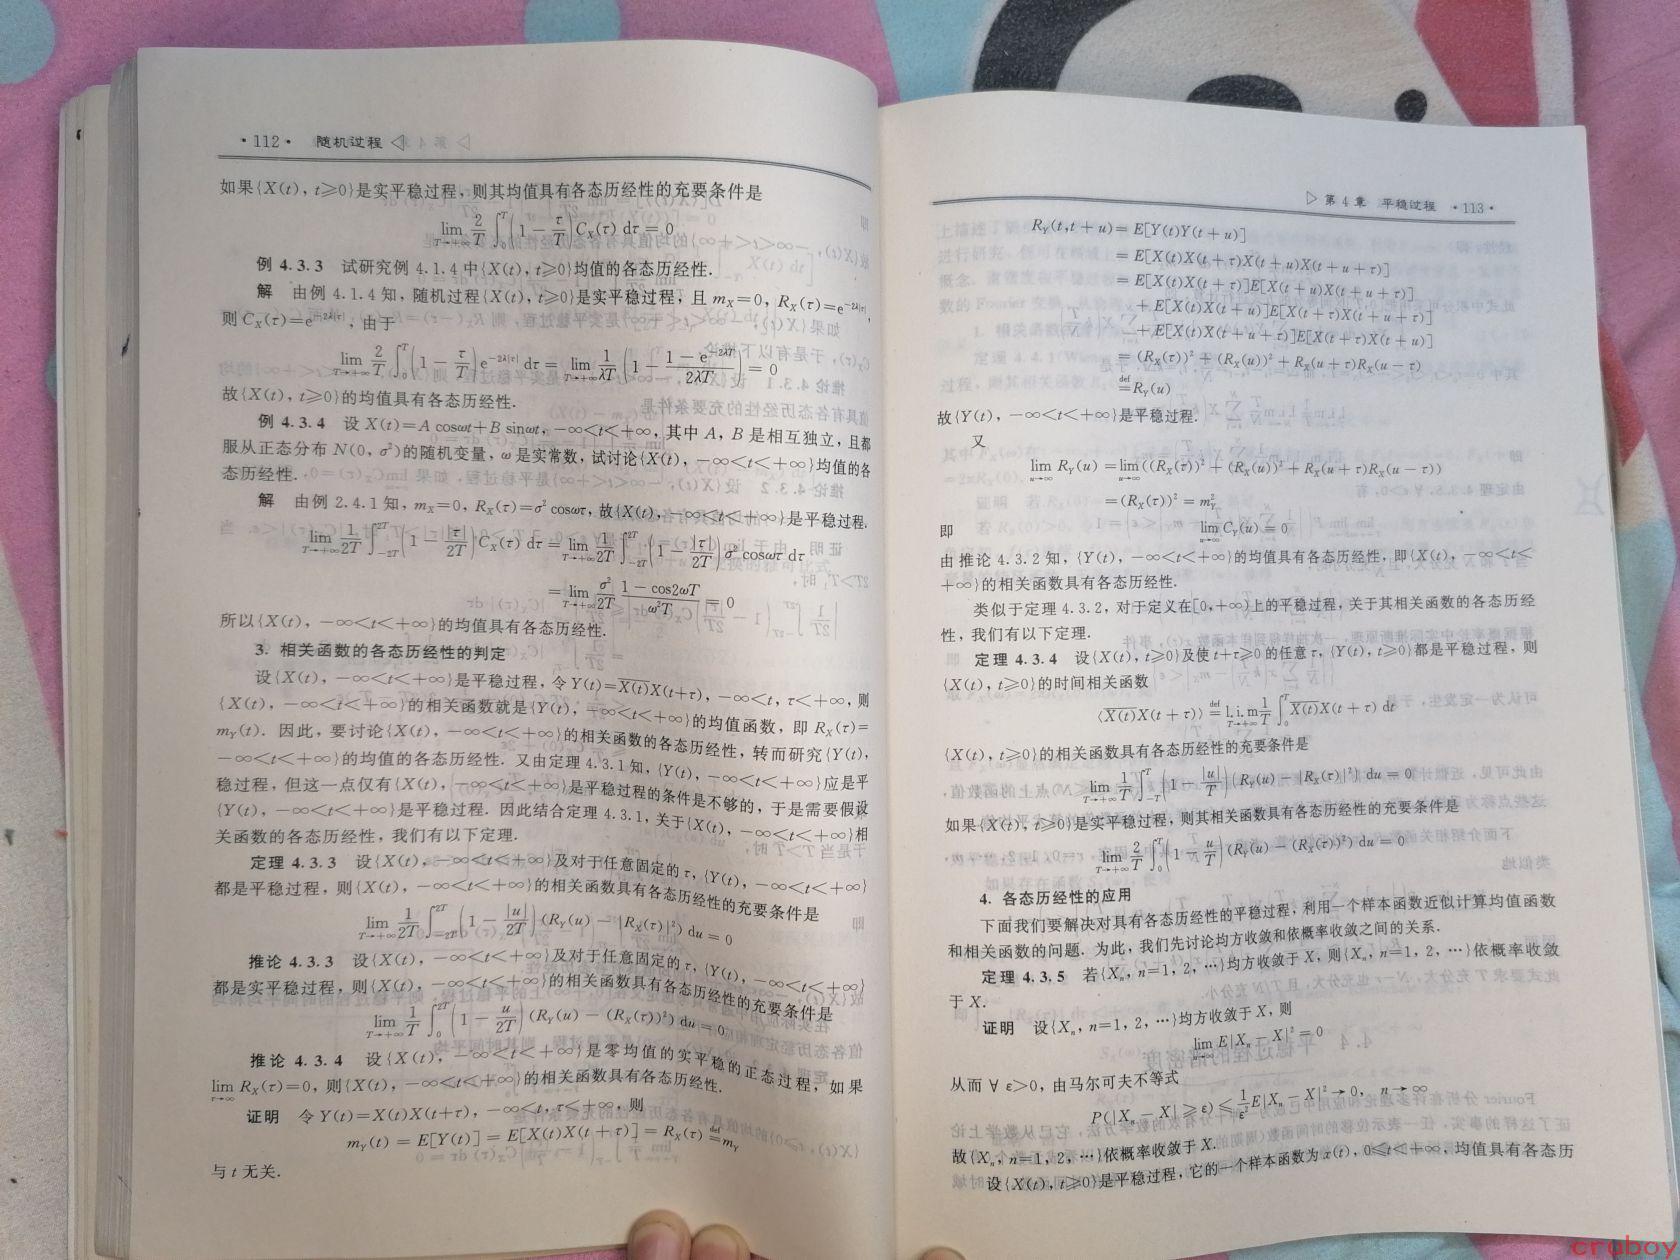 ·112· 随机过程
如果{X(t), t⩾0}是实平稳过程，则其均值具有各态历经性的充要条件是
lim_{T→+∞} 2/T ∫_0^T (1 − τ/T) C_X(τ) dτ = 0
例 4.3.3 试研究例 4.1.4 中{X(t), t⩾0}均值的各态历经性.
解 由例 4.1.4 知，随机过程{X(t), t⩾0}是实平稳过程，且 m_X=0, R_X(τ)=e^{−2λ|τ|},
则 C_X(τ)=e^{−2λ|τ|}，由于
lim_{T→+∞} 2/T ∫_0^T (1 − τ/T) e^{−2λ|τ|} dτ = lim_{T→+∞} 1/(λT) (1 − (1 − e^{−2λT})/(2λT)) = 0
故{X(t), t⩾0}的均值具有各态历经性.
例 4.3.4 设 X(t)=A cosωt+B sinωt, −∞<t<+∞, 其中 A, B 是相互独立，且都
服从正态分布 N(0, σ²)的随机变量，ω 是实常数，试讨论{X(t), −∞<t<+∞}均值的各
态历经性.
解 由例 2.4.1 知，m_X=0, R_X(τ)=σ² cosωτ, 故{X(t), −∞<t<+∞}是平稳过程.
lim_{T→+∞} 1/2T ∫_{−2T}^{2T} (1 − |τ|/2T) C_X(τ) dτ = lim_{T→+∞} 1/2T ∫_{−2T}^{2T} (1 − |τ|/2T) σ² cosωτ dτ
= lim_{T→+∞} σ²/2T (1 − cos2ωT)/(ω²T) = 0
所以{X(t), −∞<t<+∞}的均值具有各态历经性.
3. 相关函数的各态历经性的判定
设{X(t), −∞<t<+∞}是平稳过程，令 Y(t)=\overline{X(t)}X(t+τ), −∞<t, τ<+∞, 则
{X(t), −∞<t<+∞}的相关函数就是{Y(t), −∞<t<+∞}的均值函数，即 R_X(τ)=
m_Y(t). 因此，要讨论{X(t), −∞<t<+∞}的相关函数的各态历经性，转而研究{Y(t),
−∞<t<+∞}的均值的各态历经性. 又由定理 4.3.1 知，{Y(t), −∞<t<+∞}应是平
稳过程，但这一点仅有{X(t), −∞<t<+∞}是平稳过程的条件是不够的，于是需要假设
{Y(t), −∞<t<+∞}是平稳过程. 因此结合定理 4.3.1, 关于{X(t), −∞<t<+∞}相
关函数的各态历经性，我们有以下定理.
定理 4.3.3 设{X(t), −∞<t<+∞}及对于任意固定的 τ, {Y(t), −∞<t<+∞}
都是平稳过程，则{X(t), −∞<t<+∞}的相关函数具有各态历经性的充要条件是
lim_{T→+∞} 1/2T ∫_{−2T}^{2T} (1 − |u|/2T) (R_Y(u) − |R_X(τ)|²) du = 0
推论 4.3.3 设{X(t), −∞<t<+∞}及对于任意固定的 τ, {Y(t), −∞<t<+∞}
都是实平稳过程，则{X(t), −∞<t<+∞}的相关函数具有各态历经性的充要条件是
lim_{T→+∞} 1/T ∫_0^{2T} (1 − u/2T) (R_Y(u) − (R_X(τ))²) du = 0
推论 4.3.4 设{X(t), −∞<t<+∞}是零均值的实平稳的正态过程，如果
lim_{τ→∞} R_X(τ)=0, 则{X(t), −∞<t<+∞}的相关函数具有各态历经性.
证明 令 Y(t)=X(t)X(t+τ), −∞<t, τ<+∞, 则
m_Y(t) = E[Y(t)] = E[X(t)X(t+τ)] = R_X(τ) \overset{def}{=} m_Y
与 t 无关.
第 4 章 平稳过程 ·113·
R_Y(t,t+u) = E[Y(t)Y(t+u)]
= E[X(t)X(t+τ)X(t+u)X(t+u+τ)]
= E[X(t)X(t+τ)]E[X(t+u)X(t+u+τ)]
+ E[X(t)X(t+u)]E[X(t+τ)X(t+u+τ)]
+ E[X(t)X(t+u+τ)]E[X(t+τ)X(t+u)]
= (R_X(τ))² + (R_X(u))² + R_X(u+τ)R_X(u−τ)
\overset{def}{=} R_Y(u)
故{Y(t), −∞<t<+∞}是平稳过程.
又
lim_{u→∞} R_Y(u) = lim_{u→∞} ((R_X(τ))² + (R_X(u))² + R_X(u+τ)R_X(u−τ))
= (R_X(τ))² = m_Y²
即
lim_{u→∞} C_Y(u) = 0
由推论 4.3.2 知，{Y(t), −∞<t<+∞}的均值具有各态历经性，即{X(t), −∞<t<
+∞}的相关函数具有各态历经性.
类似于定理 4.3.2, 对于定义在[0, +∞)上的平稳过程，关于其相关函数的各态历经
性，我们有以下定理.
定理 4.3.4 设{X(t), t⩾0}及使 t+τ⩾0 的任意 τ, {Y(t), t⩾0}都是平稳过程，则
{X(t), t⩾0}的时间相关函数
⟨\overline{X(t)}X(t+τ)⟩ \overset{def}{=} l.i.m_{T→+∞} 1/T ∫_0^T \overline{X(t)}X(t+τ) dt
{X(t), t⩾0}的相关函数具有各态历经性的充要条件是
lim_{T→+∞} 1/T ∫_{−T}^T (1 − |u|/T) (R_Y(u) − |R_X(τ)|²) du = 0
如果{X(t), t⩾0}是实平稳过程，则其相关函数具有各态历经性的充要条件是
lim_{T→+∞} 2/T ∫_0^T (1 − u/T) (R_Y(u) − (R_X(τ))²) du = 0
4. 各态历经性的应用
下面我们要解决对具有各态历经性的平稳过程，利用一个样本函数近似计算均值函数
和相关函数的问题. 为此，我们先讨论均方收敛和依概率收敛之间的关系.
定理 4.3.5 若{X_n, n=1, 2, ⋯}均方收敛于 X, 则{X_n, n=1, 2, ⋯}依概率收敛
于 X.
证明 设{X_n, n=1, 2, ⋯}均方收敛于 X, 则
lim_{n→∞} E|X_n − X|² = 0
从而 ∀ ε>0, 由马尔可夫不等式
P(|X_n − X| ⩾ ε) ⩽ 1/ε² E|X_n − X|² → 0, n → ∞
故{X_n, n=1, 2, ⋯}依概率收敛于 X.
设{X(t), t⩾0}是平稳过程，它的一个样本函数为 x(t), 0⩽t<+∞, 均值具有各态历
cruboy